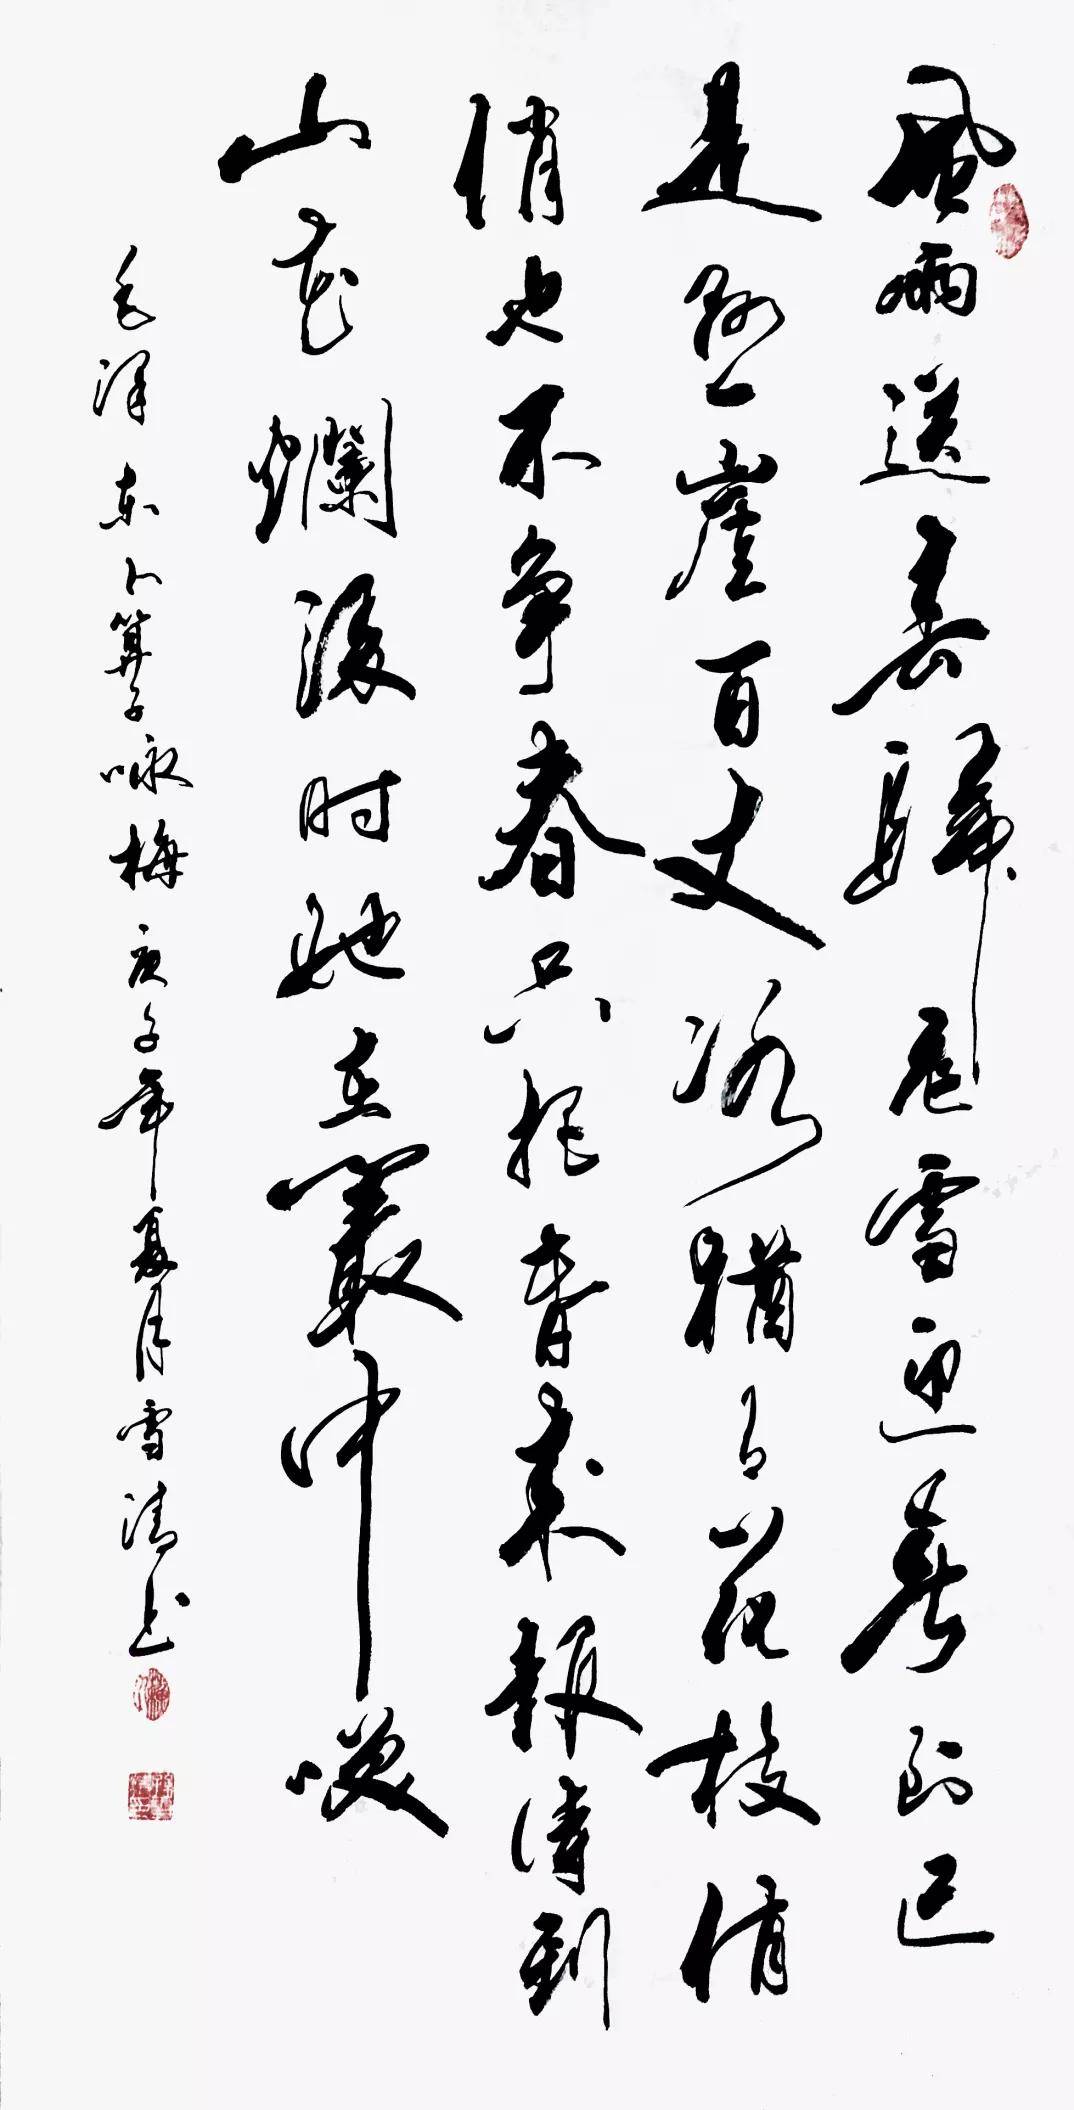 風雨送春歸飛雪迎春到已
是懸崖百丈冰猶有花枝俏
俏也不爭春只把春來報待到
山花爛漫时她在叢中咲
毛澤东卜算子咏梅庚子年夏月雪清书